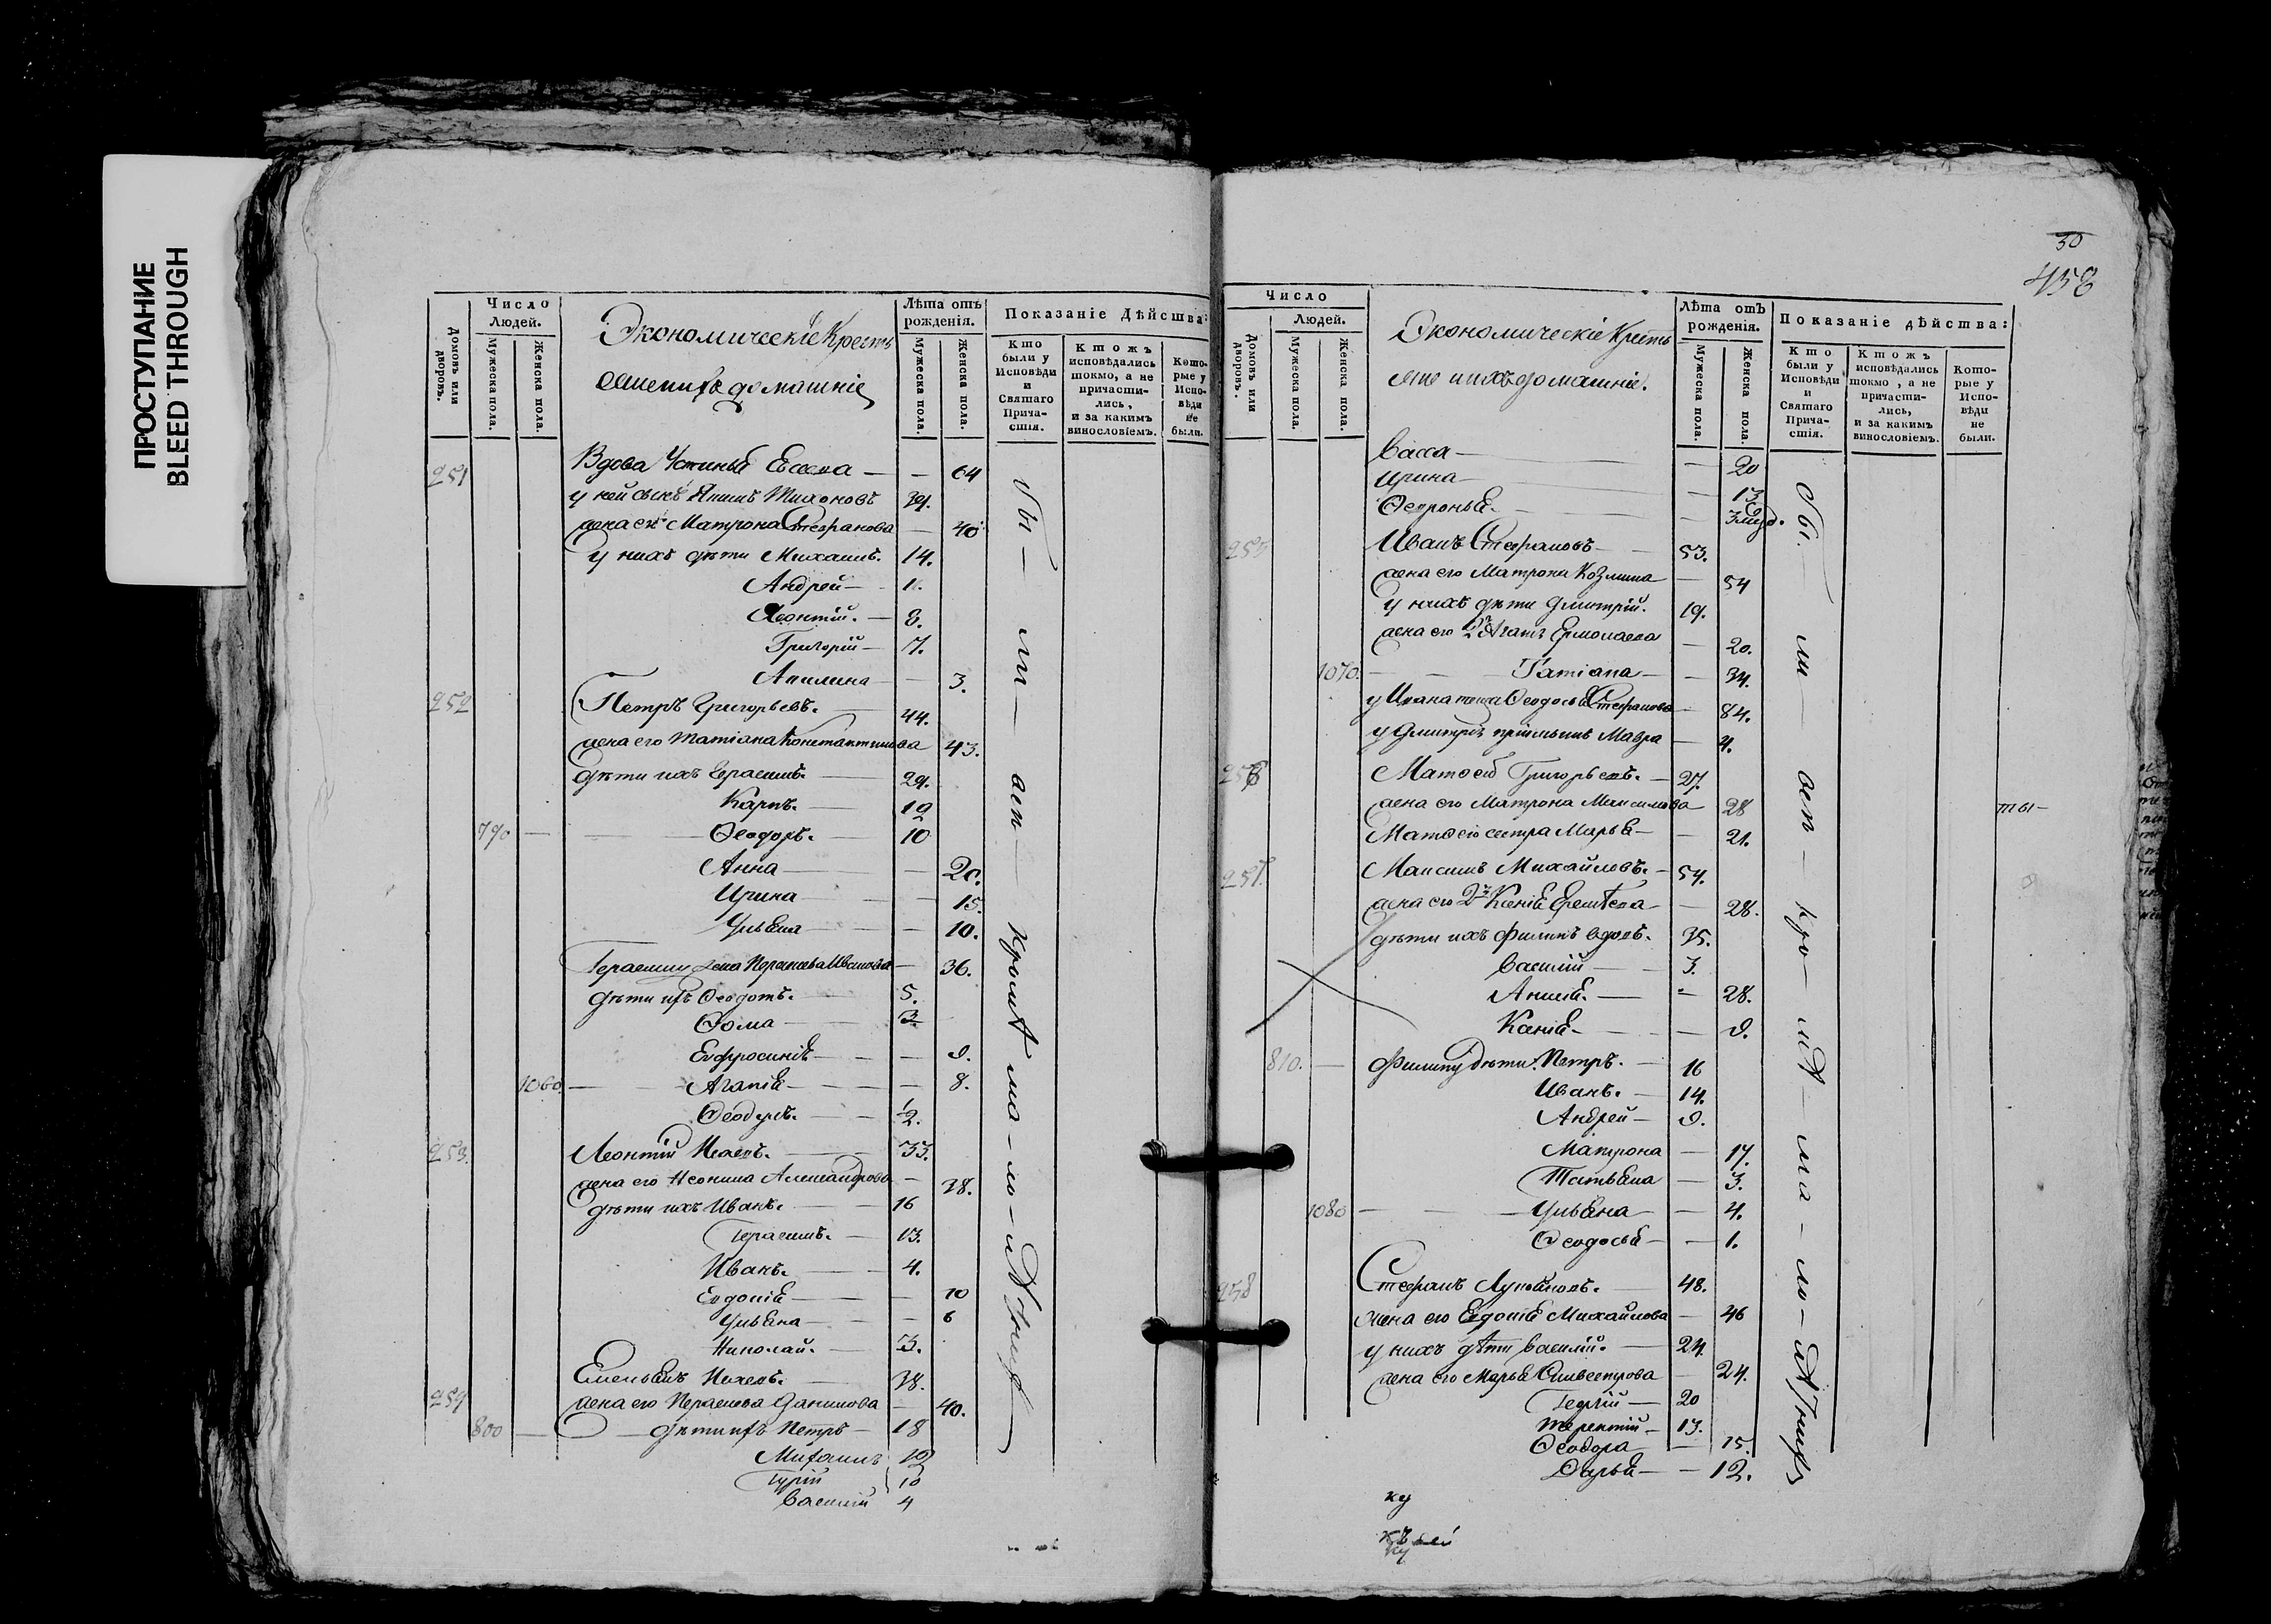 ПРОСТУПАНИЕ
BLEED THROUGH
Число
Людей.
Домовъ или дворовъ.
Мужеска пола.
Женска пола.
Экономическіе Кресть
домашніе
Лѣта отъ
рожденія.
Мужеска пола.
Женска пола.
Показаніе Дѣйства:
Кто были у Исповѣди и Святаго Прича-стія.
Ктожъ исповѣдались токмо, а не причасти-лись, и за какимъ винословіемъ.
Кото-рые у Испо-вѣди не были.
251 Вдова Устинья — — 64
у ней сынъ Тихоновъ 39.
жена его Матрона Стефанова — 40
у нихъ дѣти Михаилъ. 14.
Андрей — 1.
Леонтій. — 8.
Григорій — 7.
Акилина — — 3.
252 Петръ Григорьевъ. — 44.
жена его Татіана Константинова 43.
дѣти ихъ Герасимъ. — 29.
Карпъ. — 12
790 — Ѳеодоръ. — 10
Анна — — 20.
Ирина — — 15.
Ульяна — — 10.
Герасиму жена Парасковья Иванова — 36.
дѣти ихъ Ѳеодотъ. — 5.
Ѳома — 3.
Евфросинія — — 9.
1060. — Агапія — — 8.
Ѳеодоръ. — 1/2.
253. Леонтій — 33.
жена его Неонила Александрова — 38.
дѣти ихъ Иванъ. — 16
Герасимъ. — 13.
Иванъ. — 4.
Евдокія — — 10
Ульяна — — 6
Николай. — 3.
254 Емельянъ — 38.
жена его Парасковья Данилова — 40.
800 — дѣти ихъ Петръ — 18
Михаилъ 12
Гурій 10
Василій 4
бы — ли — всп — кромѣ ма — ло — лѣтнихъ
30
458
Число
Людей.
Домовъ или дворовъ.
Мужеска пола.
Женска пола.
Экономическіе Кресть
яне и ихъ домашніе.
Лѣта отъ
рожденія.
Мужеска пола.
Женска пола.
Показаніе дѣйства:
Кто были у Исповѣди и Святаго Прича-стія.
Ктожъ исповѣдались токмо, а не причасти-лись, и за какимъ винословіемъ.
Кото-рые у Испо-вѣди не были.
Васса — — 20
Ирина — — 13
Ѳевронья. — —
255 Иванъ Стефановъ — 53.
жена его Матрона Козмина — 54
у нихъ дѣти Дмитрій. 19.
жена его Ермолаева — 20.
1070. — — Татіана — — 34.
у Ивана теща Ѳеодосья Стефанова — 84.
у Дмитрія пріемышъ Мавра — 4.
256 Матѳей Григорьевъ. — 27.
жена его Матрона Максимова 28
Матѳею сестра Марья — — 21.
257. Максимъ Михайловъ. — 54.
жена его 2я Ксенія — 28.
дѣти ихъ Филипъ вдовъ. 35.
Василій — 3.
Анисія. — — 28.
Ксенія — — 9.
810. — Филипу дѣти: Петръ. — 16
Иванъ. — 14.
Андрей — 9.
Матрона — 17.
Татьяна — 3.
1080 — Ульяна — 4.
Ѳеодосья — — 1.
258 Стефанъ Лукьяновъ. 48.
жена его Евдокія Михайлова — 46
у нихъ дѣти Василій. — 24.
жена его Марья Сильвестрова — 24.
Георгій — 20
Терентій — 13.
Ѳеодора — — 15.
Дарья — — 12.
бы. — ли — всп — кро — мѣ — ма — ло — лѣтнихъ
ты —
ку